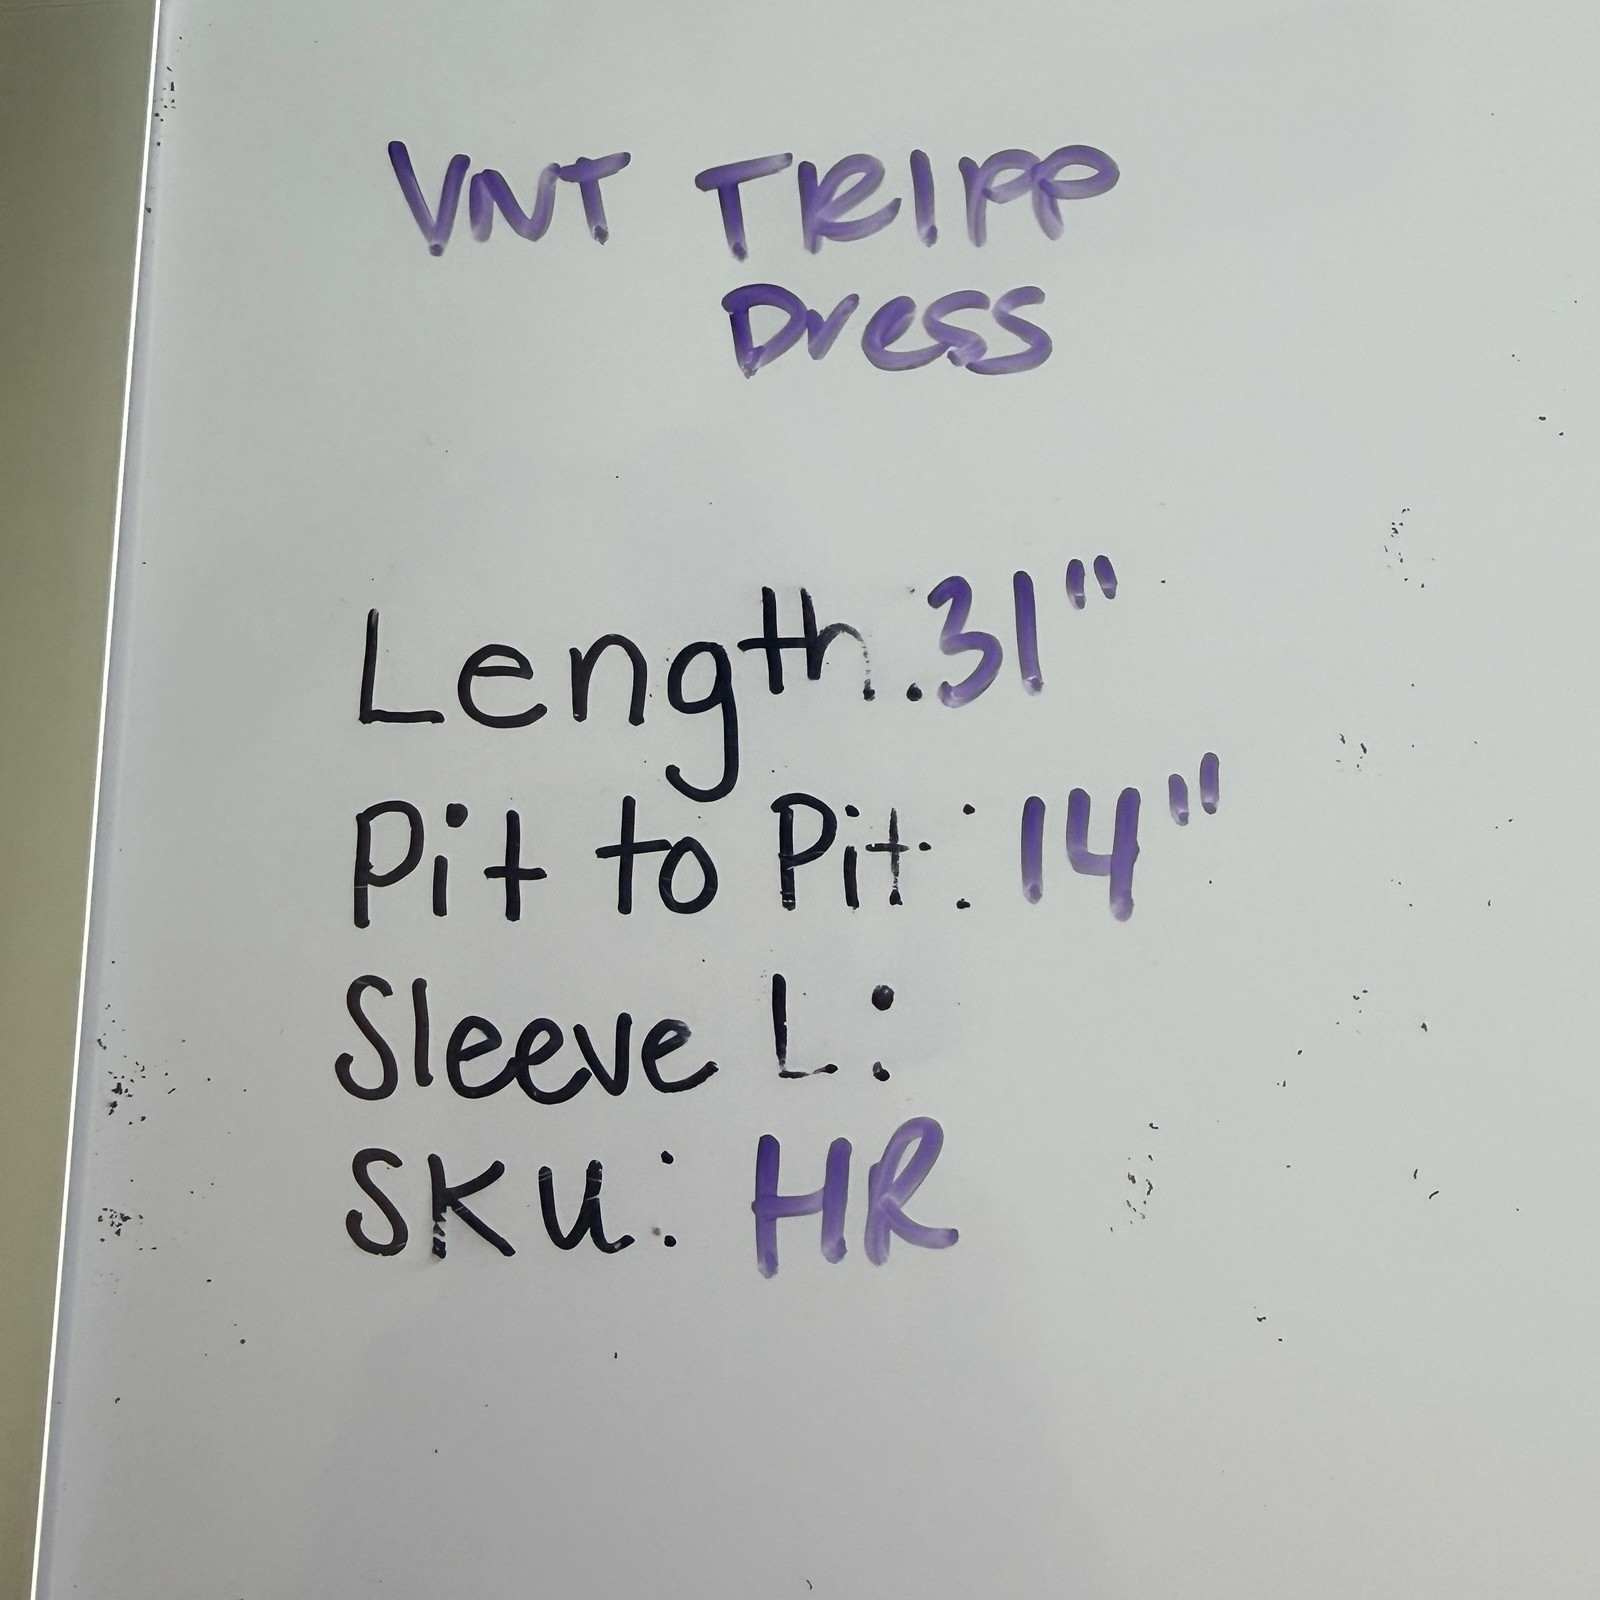 VNT TRIPP
Dress
Length: 31"
Pit to Pit: 14"
Sleeve L:
SKU: HR